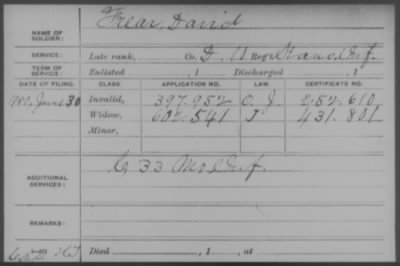 Frear, David
NAME OF SOLDIER:
SERVICE: Late rank, Co. F, Reg't Kans. Inf.
TERM OF SERVICE: Enlisted , 1 Discharged , 1
DATE OF FILING. CLASS. APPLICATION NO. LAW. CERTIFICATE NO.
June 30 Invalid, 397.952 O. J. 252.610
Widow, 602.541 J 431.801
Minor,
C 33 Mo. Inf.
ADDITIONAL SERVICES:
REMARKS:
Died , 1 , at